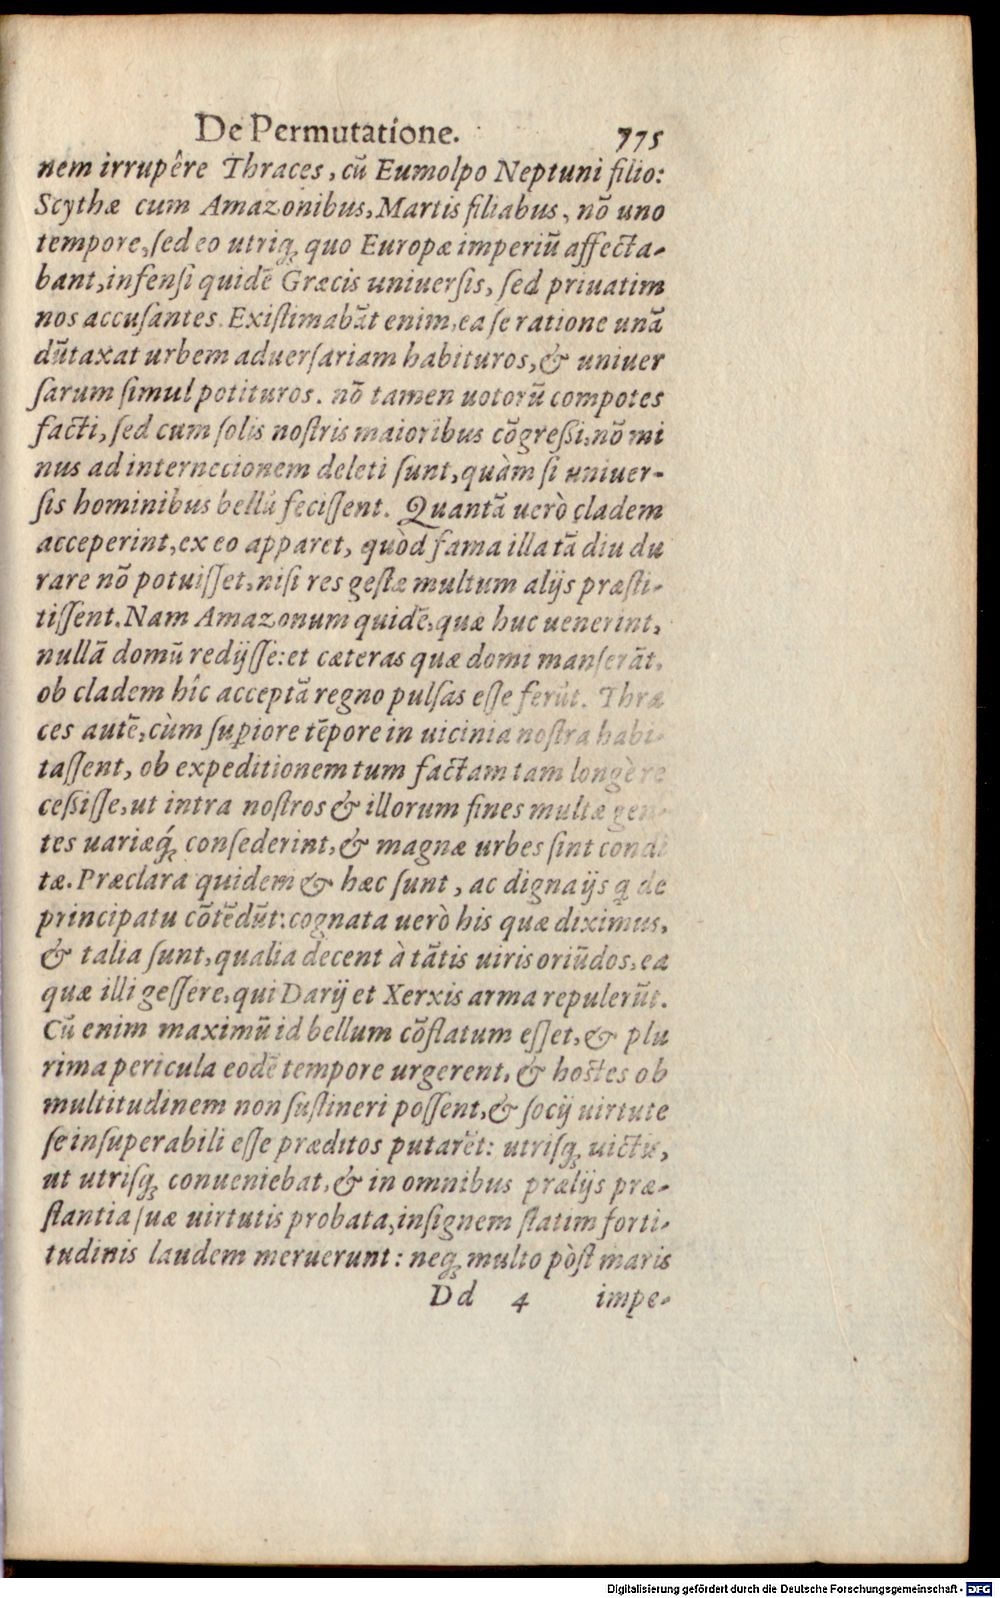 De Permutatione. 775
nem irrupêre Thraces, cũ Eumolpo Neptuni filio:
Scythæ cum Amazonibus, Martis filiabus, nõ uno
tempore, ſed eo utriq́ꝫ quo Europæ imperiũ affecta-
bant, infenſi quidẽ Græcis uniuerſis, ſed priuatim
nos accuſantes. Exiſtimabãt enim, ea ſe ratione unã
dũtaxat urbem aduerſariam habituros, & uniuer
ſarum ſimul potituros. nõ tamen uotorũ compotes
facti, ſed cum ſolis noſtris maioribus cõgreßi, nõ mi
nus ad internecionem deleti ſunt, quàm ſi uniuer-
ſis hominibus bellũ feciſſent. Quantã uerò cladem
acceperint, ex eo apparet, quòd fama illa tã diu du
rare nõ potuiſſet, niſi res geſtæ multum alijs præſti-
tiſſent. Nam Amazonum quidẽ, quæ huc uenerint,
nullã domũ redijſſe: et cæteras quæ domi manſerãt,
ob cladem hîc acceptã regno pulſas eſſe ferũt. Thra
ces autẽ, cùm ſuꝑiore tẽpore in uicinia noſtra habi-
taſſent, ob expeditionem tum factam tam longè re
ceßiſſe, ut intra noſtros & illorum fines multæ gen-
tes uariæq́ꝫ conſederint, & magnæ urbes ſint condi
tæ. Præclara quidem & hæc ſunt, ac digna ijs q̃ de
principatu cõtẽdũt: cognata uerò his quæ diximus,
& talia ſunt, qualia decent à tãtis uiris oriũdos, ea
quæ illi geſſere, qui Darij et Xerxis arma repulerũt.
Cũ enim maximũ id bellum cõflatum eſſet, & plu
rima pericula eodẽ tempore urgerent, & hoſtes ob
multitudinem non ſuſtineri poſſent, & ſocij uirtute
ſe inſuperabili eſſe præditos putarẽt: utriſqꝫ uictis,
ut utriſqꝫ conueniebat, & in omnibus prælijs præ-
ſtantia ſuæ uirtutis probata, inſignem ſtatim forti-
tudinis laudem meruerunt: neqꝫ multo pòſt maris
Dd 4 impe-
Digitalisierung gefördert durch die Deutsche Forschungsgemeinschaft - DFG